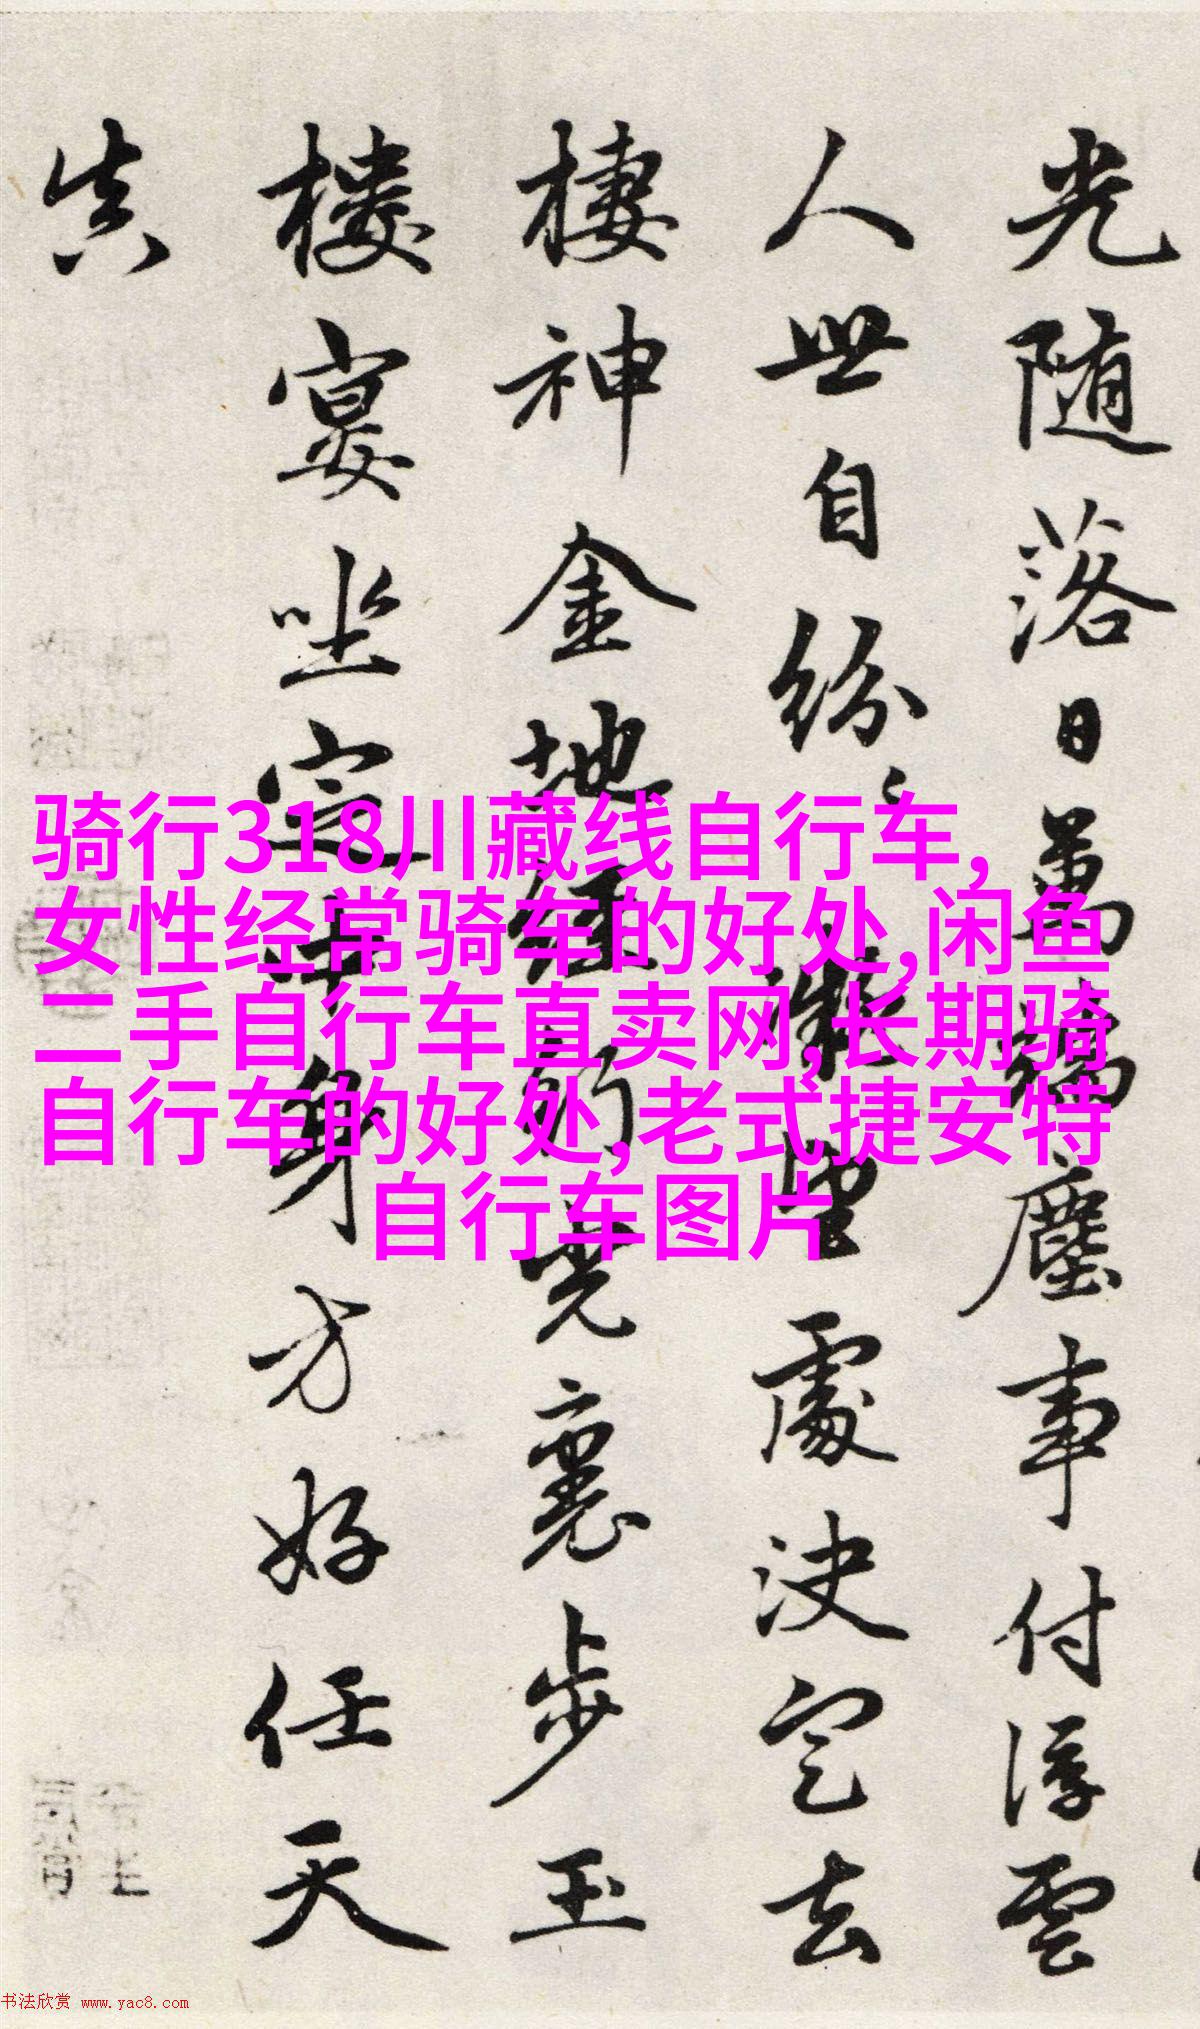 光随落日萬端塵事付浮雲
人世自紛〻凝望處決定去
棲神金地經行覺裏步玉
樓宴坐定中身方好任天
真
骑行318川藏线自行车,
女性经常骑车的好处,闲鱼
二手自行车直卖网,长期骑
自行车的好处,老式捷安特
自行车图片
书法欣赏 www.yac8.com